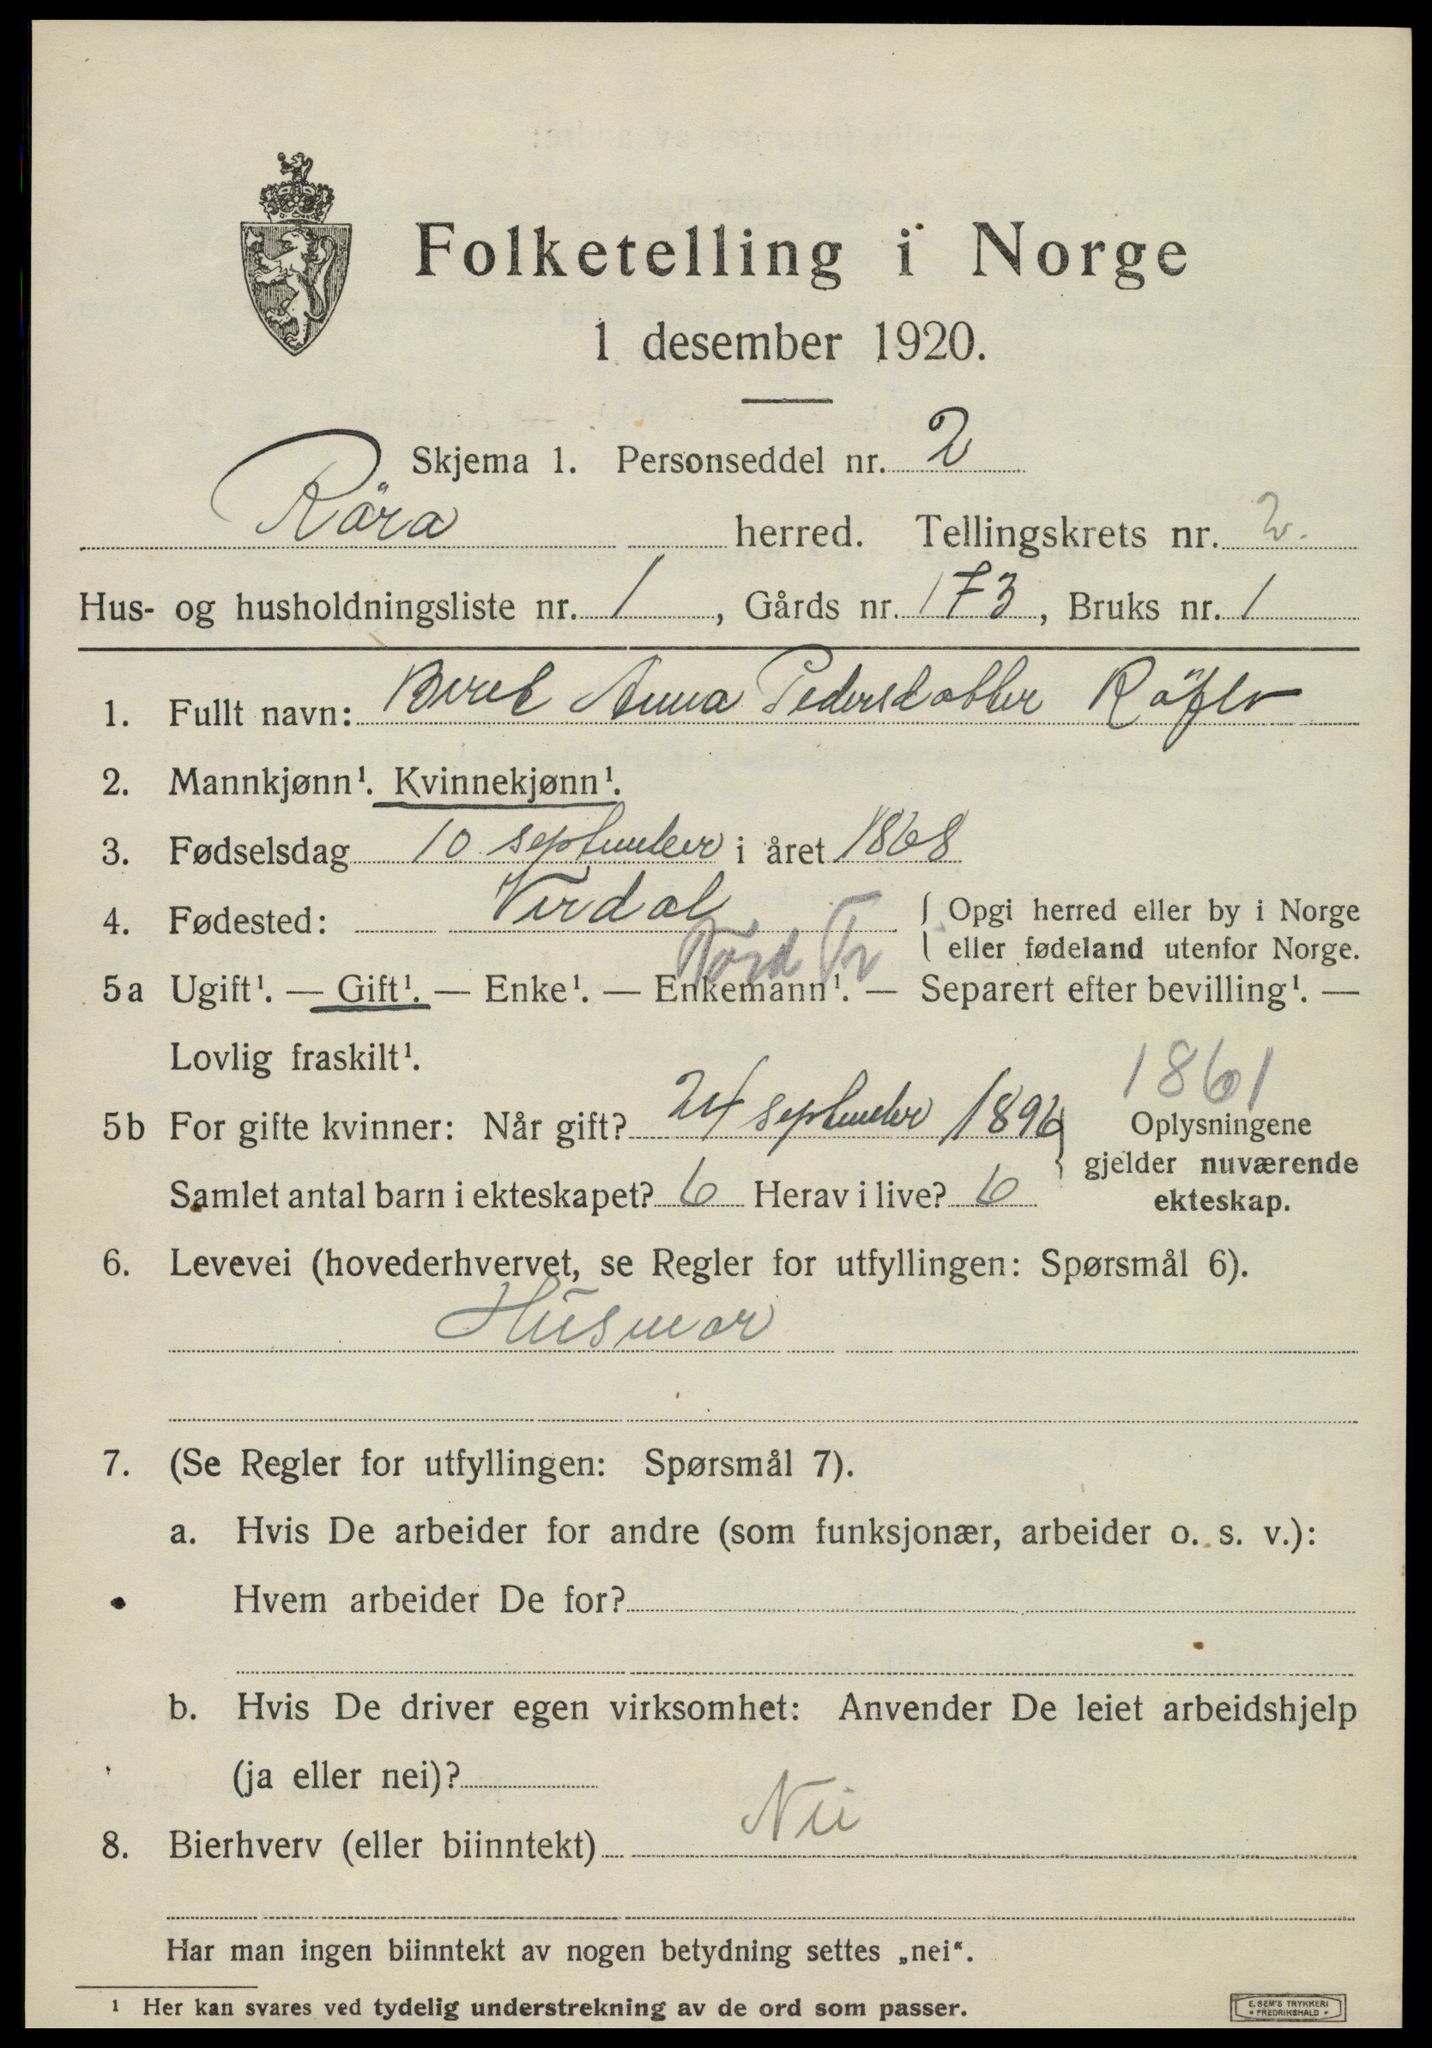 Folketelling i Norge
1 desember 1920.
Skjema 1. Personseddel nr. 2
Röra herred. Tellingskrets nr. 2.
Hus- og husholdningsliste nr. 1, Gårds nr. 173, Bruks nr. 1
1. Fullt navn: Beret Anna Pedersdatter
2. Mannkjønn¹. Kvinnekjønn¹.
3. Fødselsdag 10 september i året 1868
4. Fødested: Verdal { Opgi herred eller by i Norge
Nord Tr { eller fødeland utenfor Norge.
5a Ugift¹. — Gift¹. — Enke¹. — Enkemann¹. — Separert efter bevilling¹. —
Lovlig fraskilt¹.
1861
5b For gifte kvinner: Når gift? 24 september 1896 } Oplysningene
gjelder nuværende
Samlet antal barn i ekteskapet? 6 Herav i live? 6 ekteskap.
6. Levevei (hovederhvervet, se Regler for utfyllingen: Spørsmål 6).
Husmor
7. (Se Regler for utfyllingen: Spørsmål 7).
a. Hvis De arbeider for andre (som funksjonær, arbeider o. s. v.):
Hvem arbeider De for?
b. Hvis De driver egen virksomhet: Anvender De leiet arbeidshjelp
(ja eller nei)?
8. Bierhverv (eller biinntekt) Nei
Har man ingen biinntekt av nogen betydning settes „nei“.
¹ Her kan svares ved tydelig understrekning av de ord som passer.
E. SEM'S TRYKKERI
• FREDRIKSHALD •